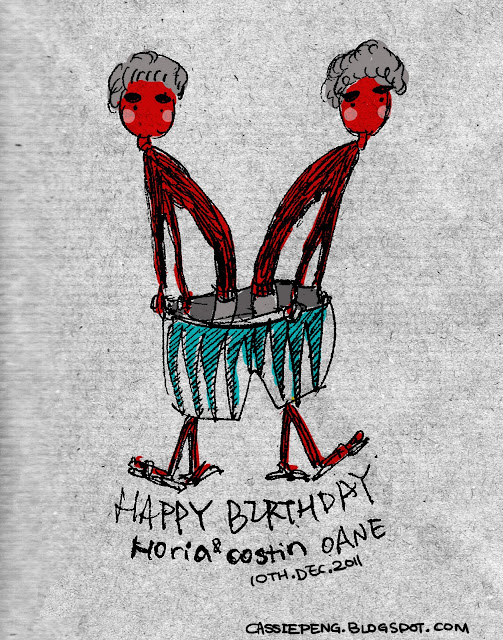 HAPPY BIRTHDAY
Horia & costin OANE
10TH.DEC.2011
CASSIEPENG.BLOGSPOT.COM